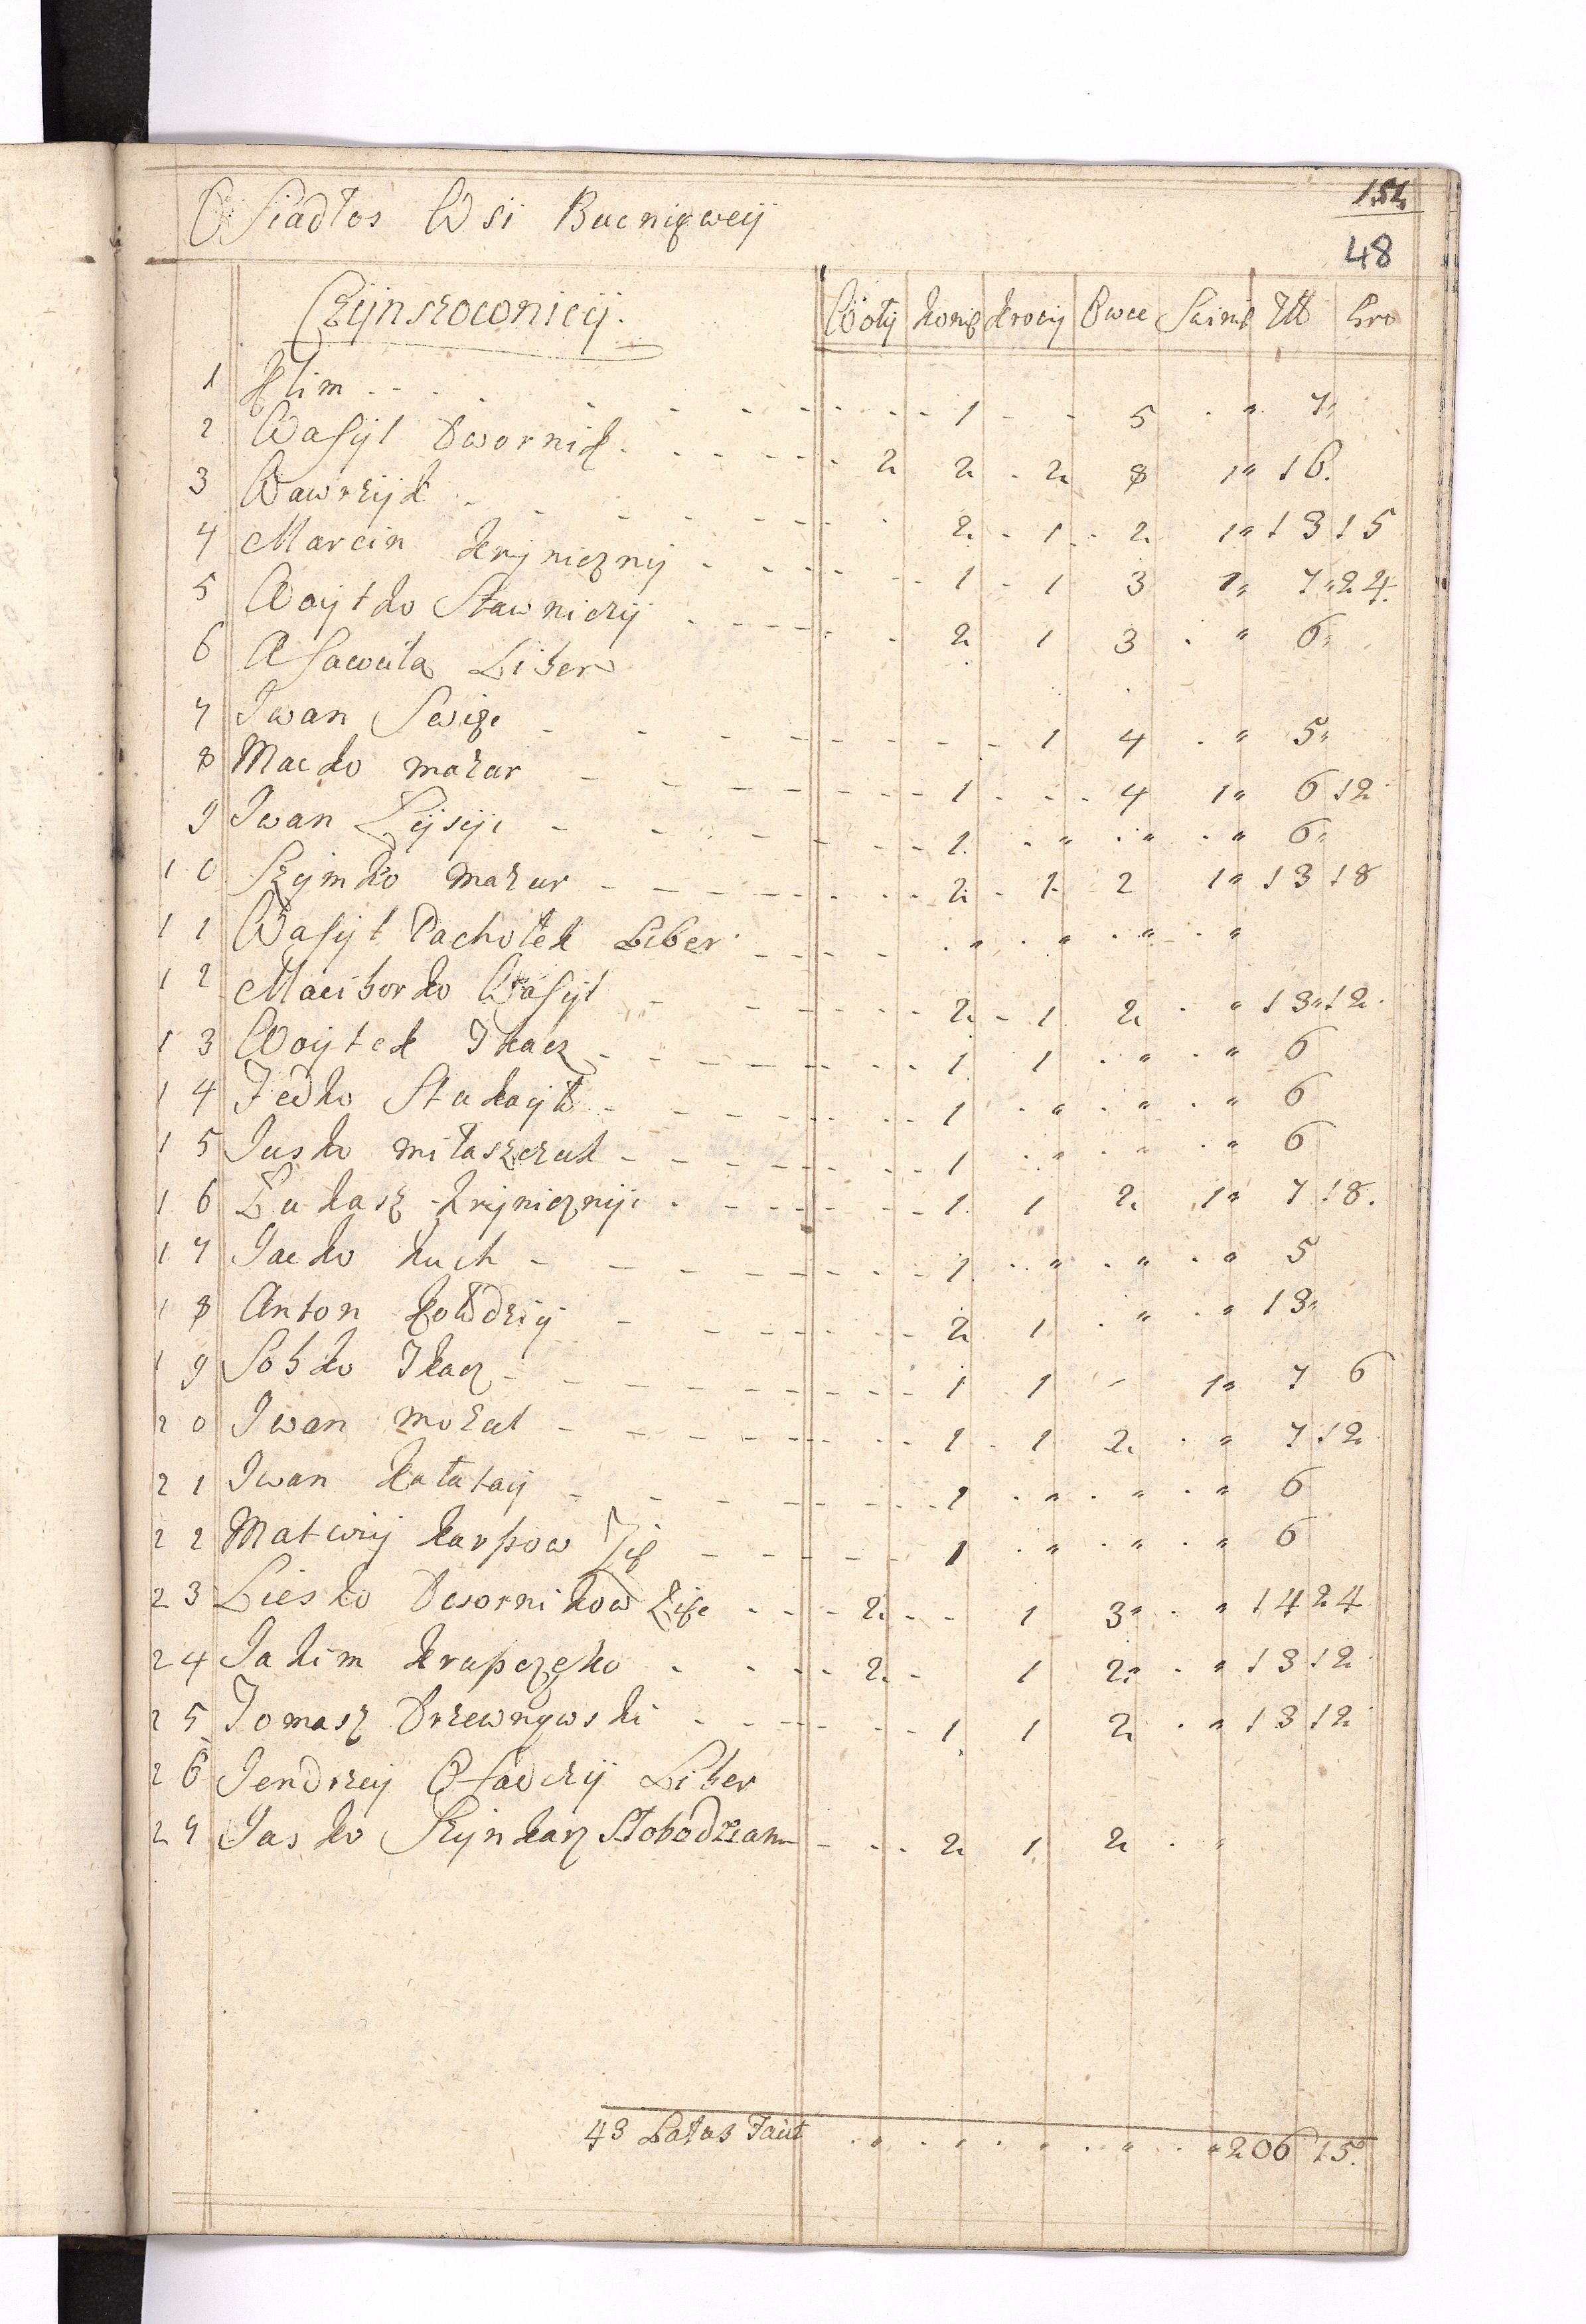 151
Osiadłos Wsi Bucnięweij
48
Czÿnszowniccÿ. Wołÿ konie krowÿ Owce Swinie Złł Gro
1 Klim 1 - - 5 . " 7"
2 Wasÿl Dwornik 2 2 2 8 1" 16.
3 Wawrzÿk 2 1 2 1" 13 15
4 Marcin krÿnicznÿ 1 1 3 1" 7" 24.
5 Woÿtko Stawniczÿ 2 1 3 . " 6"
6 Asawuła Liber
7 Iwan 1 4 . " 5"
8 Macko mazur 1 . . 4 1" 6 12
9 Iwan Łÿsÿi 1 . " . " . " 6"
10 Szÿmko mazur 2 1 2 1" 13 18
11 Wasÿl Pachołek Liber . " . " . " . "
12 Maciborko Wasÿl 2 1 2 . " 13" 12
13 Woÿtek Tkacz 1 1 . " . " 6
14 Fedko 1 . " . " . " 6
15 Jusko miłaszczuk 1 . " . " . " 6
16 Łukasz krÿnicznÿi 1 1 2 1" 7 18.
17 Jacko kuch 1 . " . " . " 5
18 Anton kołłdziÿ 2 1 . " . " 13"
19 Sobko Tkacz 1 1 - 1" 7 6
20 Iwan mozul 1 1 2 . " 7 12
21 Iwan kałataÿ 1 . " . " . " 6
22 Matwiÿ karpow Zięć 1 . " . " . " 6
23 Liesko Dwornikow Zięć 2 - 1 3" . " 14 24
24 Jakim krupczęko 2 - 1 2" . " 13 12
25 Tomasz Drzewnÿwski 1 1 2 . " 13 12
26 Jendrzeÿ Osadczÿ Liber
27 Jasko Szÿnkarz Słobodzian 2 1 2 . "
43 Latus Facit . " . " . " . " . " 206 15.